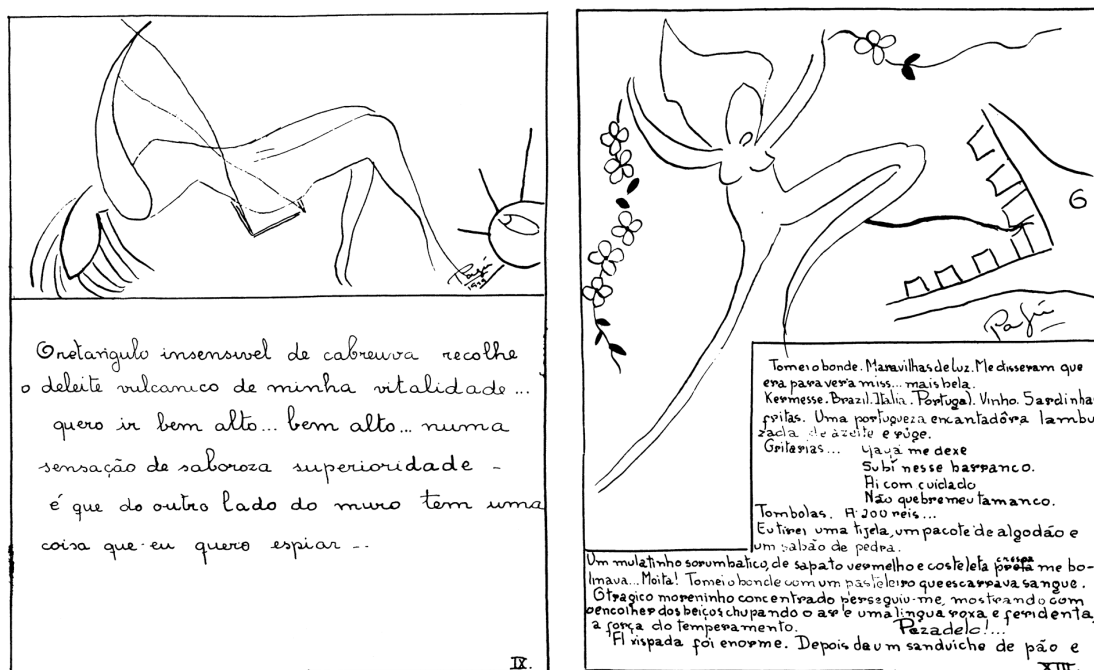 Pagú
1929
O retangulo insensivel de cabreuva recolhe
o deleite vulcanico de minha vitalidade...
quero ir bem alto... bem alto... numa
sensação de saboroza superioridade -
é que do outro lado do muro tem uma
coisa que eu quero espiar...
IX.
6
Pagú
Tomei o bonde. Maravilhas de luz. Me disseram que
era para ver a miss... mais bela.
Kermesse. Brazil. Italia. Portugal. Vinho. Sardinhas
fritas. Uma portugueza encantadôra lambu
zada de azeite e rúge.
Gritarias... Yayá me dexe
Subí nesse barranco.
Ai com cuidado
Não quebre meu tamanco.
Tombolas. A 200 reis...
Eu tirei uma tijela, um pacote de algodão e
um sabão de pedra.
Um mulatinho sorumbatico, de sapato vermelho e costeleta crespa me bo-
linava... Moita! Tomei o bonde com um pasteleiro que escarrava sangue.
O tragico moreninho concentrado perseguiu-me, mostrando com
o encolher dos beiços chupando o ar e uma lingua roxa e feridenta,
a força do temperamento. Pezadelo!...
A rispada foi enorme. Depois de um sanduiche de pão e
XIII.